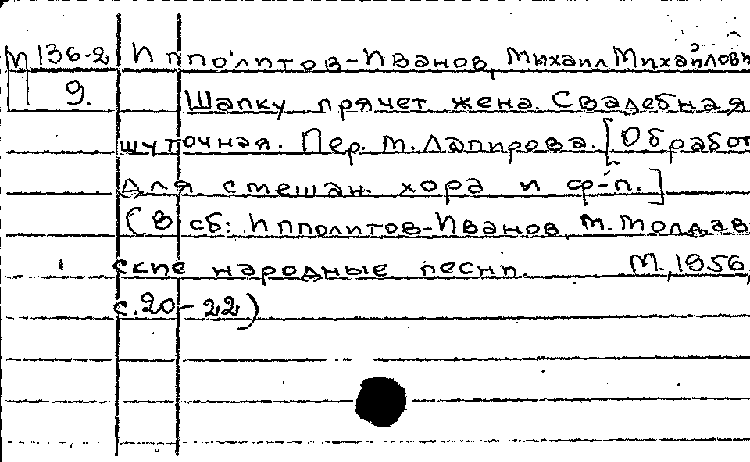 М 136-2 Ипполитов-Иванов, Михаил Михайлови
9. Шапку прячет жена. Свадебная
шуточная. Пер. М. Лапирова. [Обработ
для смешан. хора и ф-п.]
(В сб: Ипполитов-Иванов, М. Молдав
ские народные песни. М., 1956,
с. 20-22)